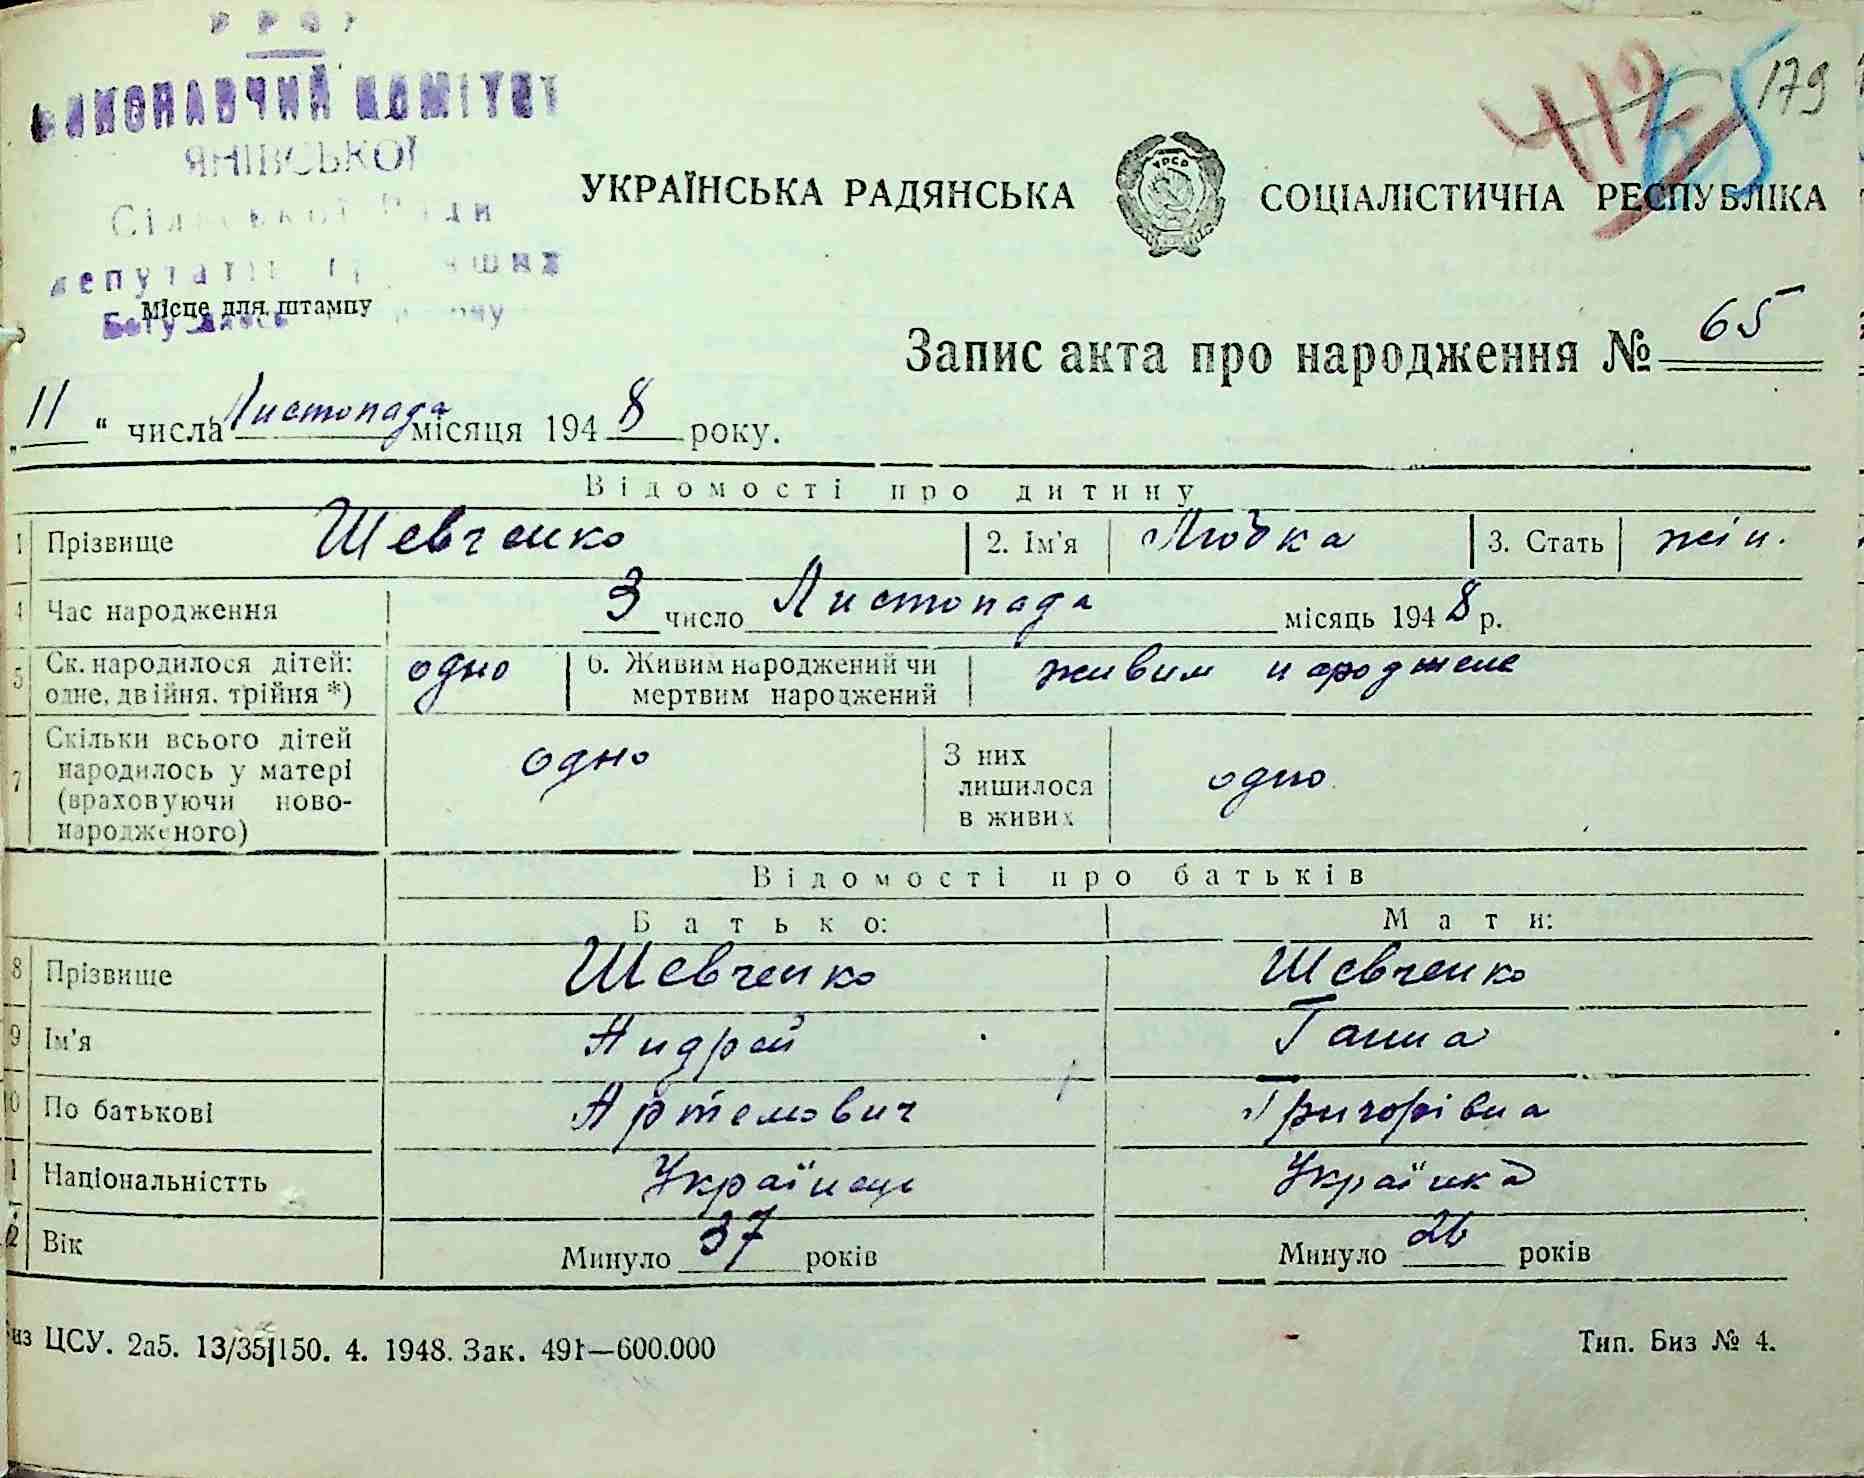 УРСР
ВИКОНАВЧИЙ КОМІТЕТ
ЯНІВСЬКОЇ
Сільської Ради
депутатів трудящих
Місце для штампу
412
65
179
УКРАЇНСЬКА РАДЯНСЬКА СОЦІАЛІСТИЧНА РЕСПУБЛІКА
Запис акта про народження № 65
„ 11 “ числа Листопада місяця 1948 року.
Відомості про дитину
1 Прізвище Шевченко 2. Ім'я Любка 3. Стать жін.
4 Час народження 3 число Листопада місяць 1948 р.
5 Ск. народилося дітей: одне, двійня, трійня *) одно 6. Живим народжений чи мертвим народжений живим народжене
7 Скільки всього дітей народилось у матері (враховуючи ново-народженого) одно З них лишилося в живих одно
Відомості про батьків
Батько: Мати:
8 Прізвище Шевченко Шевченко
9 Ім'я Андрей Ганна
10 По батькові Артемович Григорівна
11 Національністть Українець Українка
12 Вік Минуло 37 років Минуло 26 років
из ЦСУ. 2а5. 13/35|150. 4. 1948. Зак. 491—600.000 Тип. Биз № 4.